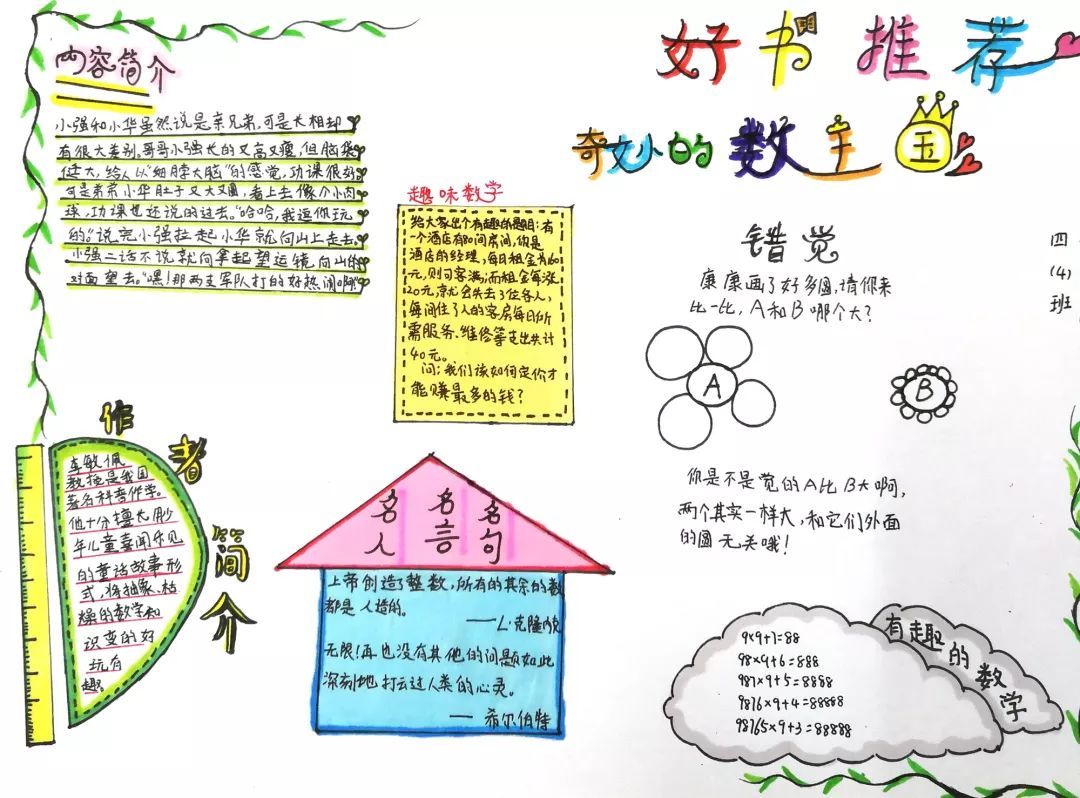 好书推荐
奇妙的数王国
内容简介
小强和小华虽然说是亲兄弟,可是长相却
有很大差别。哥哥小强长的又高又瘦,但脑袋
挺大,给人以“细脖大脑”的感觉,功课很好。
可是弟弟小华肚子又大又圆,看上去像个小肉
球,功课也还说的过去。“哈哈,我逗你玩
的。”说完小强拉起小华就向山上走去。
小强二话不说就向拿起望远镜向山的
对面望去。“嘿!那两支军队打的好热闹啊!
趣味数学
给大家出个有趣的题目:有
一个酒店有80间房间,你是
酒店的经理,每日租金为160
元,则可客满;而租金每涨
20元,就会失去3位客人,
每间住了人的客房每日所
需服务、维修等支出共计
40元。
问:我们该如何定价才
能赚最多的钱?
错觉
康康画了好多圆,请你来
比一比,A和B哪个大?
A
B
你是不是觉的A比B大啊,
两个其实一样大,和它们外面
的圆无关哦!
四
(4)
班
作者简介
李敏佩
教授是我国
著名科普作学。
他十分擅长用少
年儿童喜闻乐见
的童话故事形
式,将抽象、枯
燥的数学知
识变的好
玩有
趣。
名人
名言
名句
上帝创造了整数,所有的其余的数
都是人造的。
——L·克隆内克
无限!再也没有其他的问题如此
深刻地打动过人类的心灵。
——希尔伯特
有趣的数学
9×9+7=88
98×9+6=888
987×9+5=8888
9876×9+4=88888
98765×9+3=88888